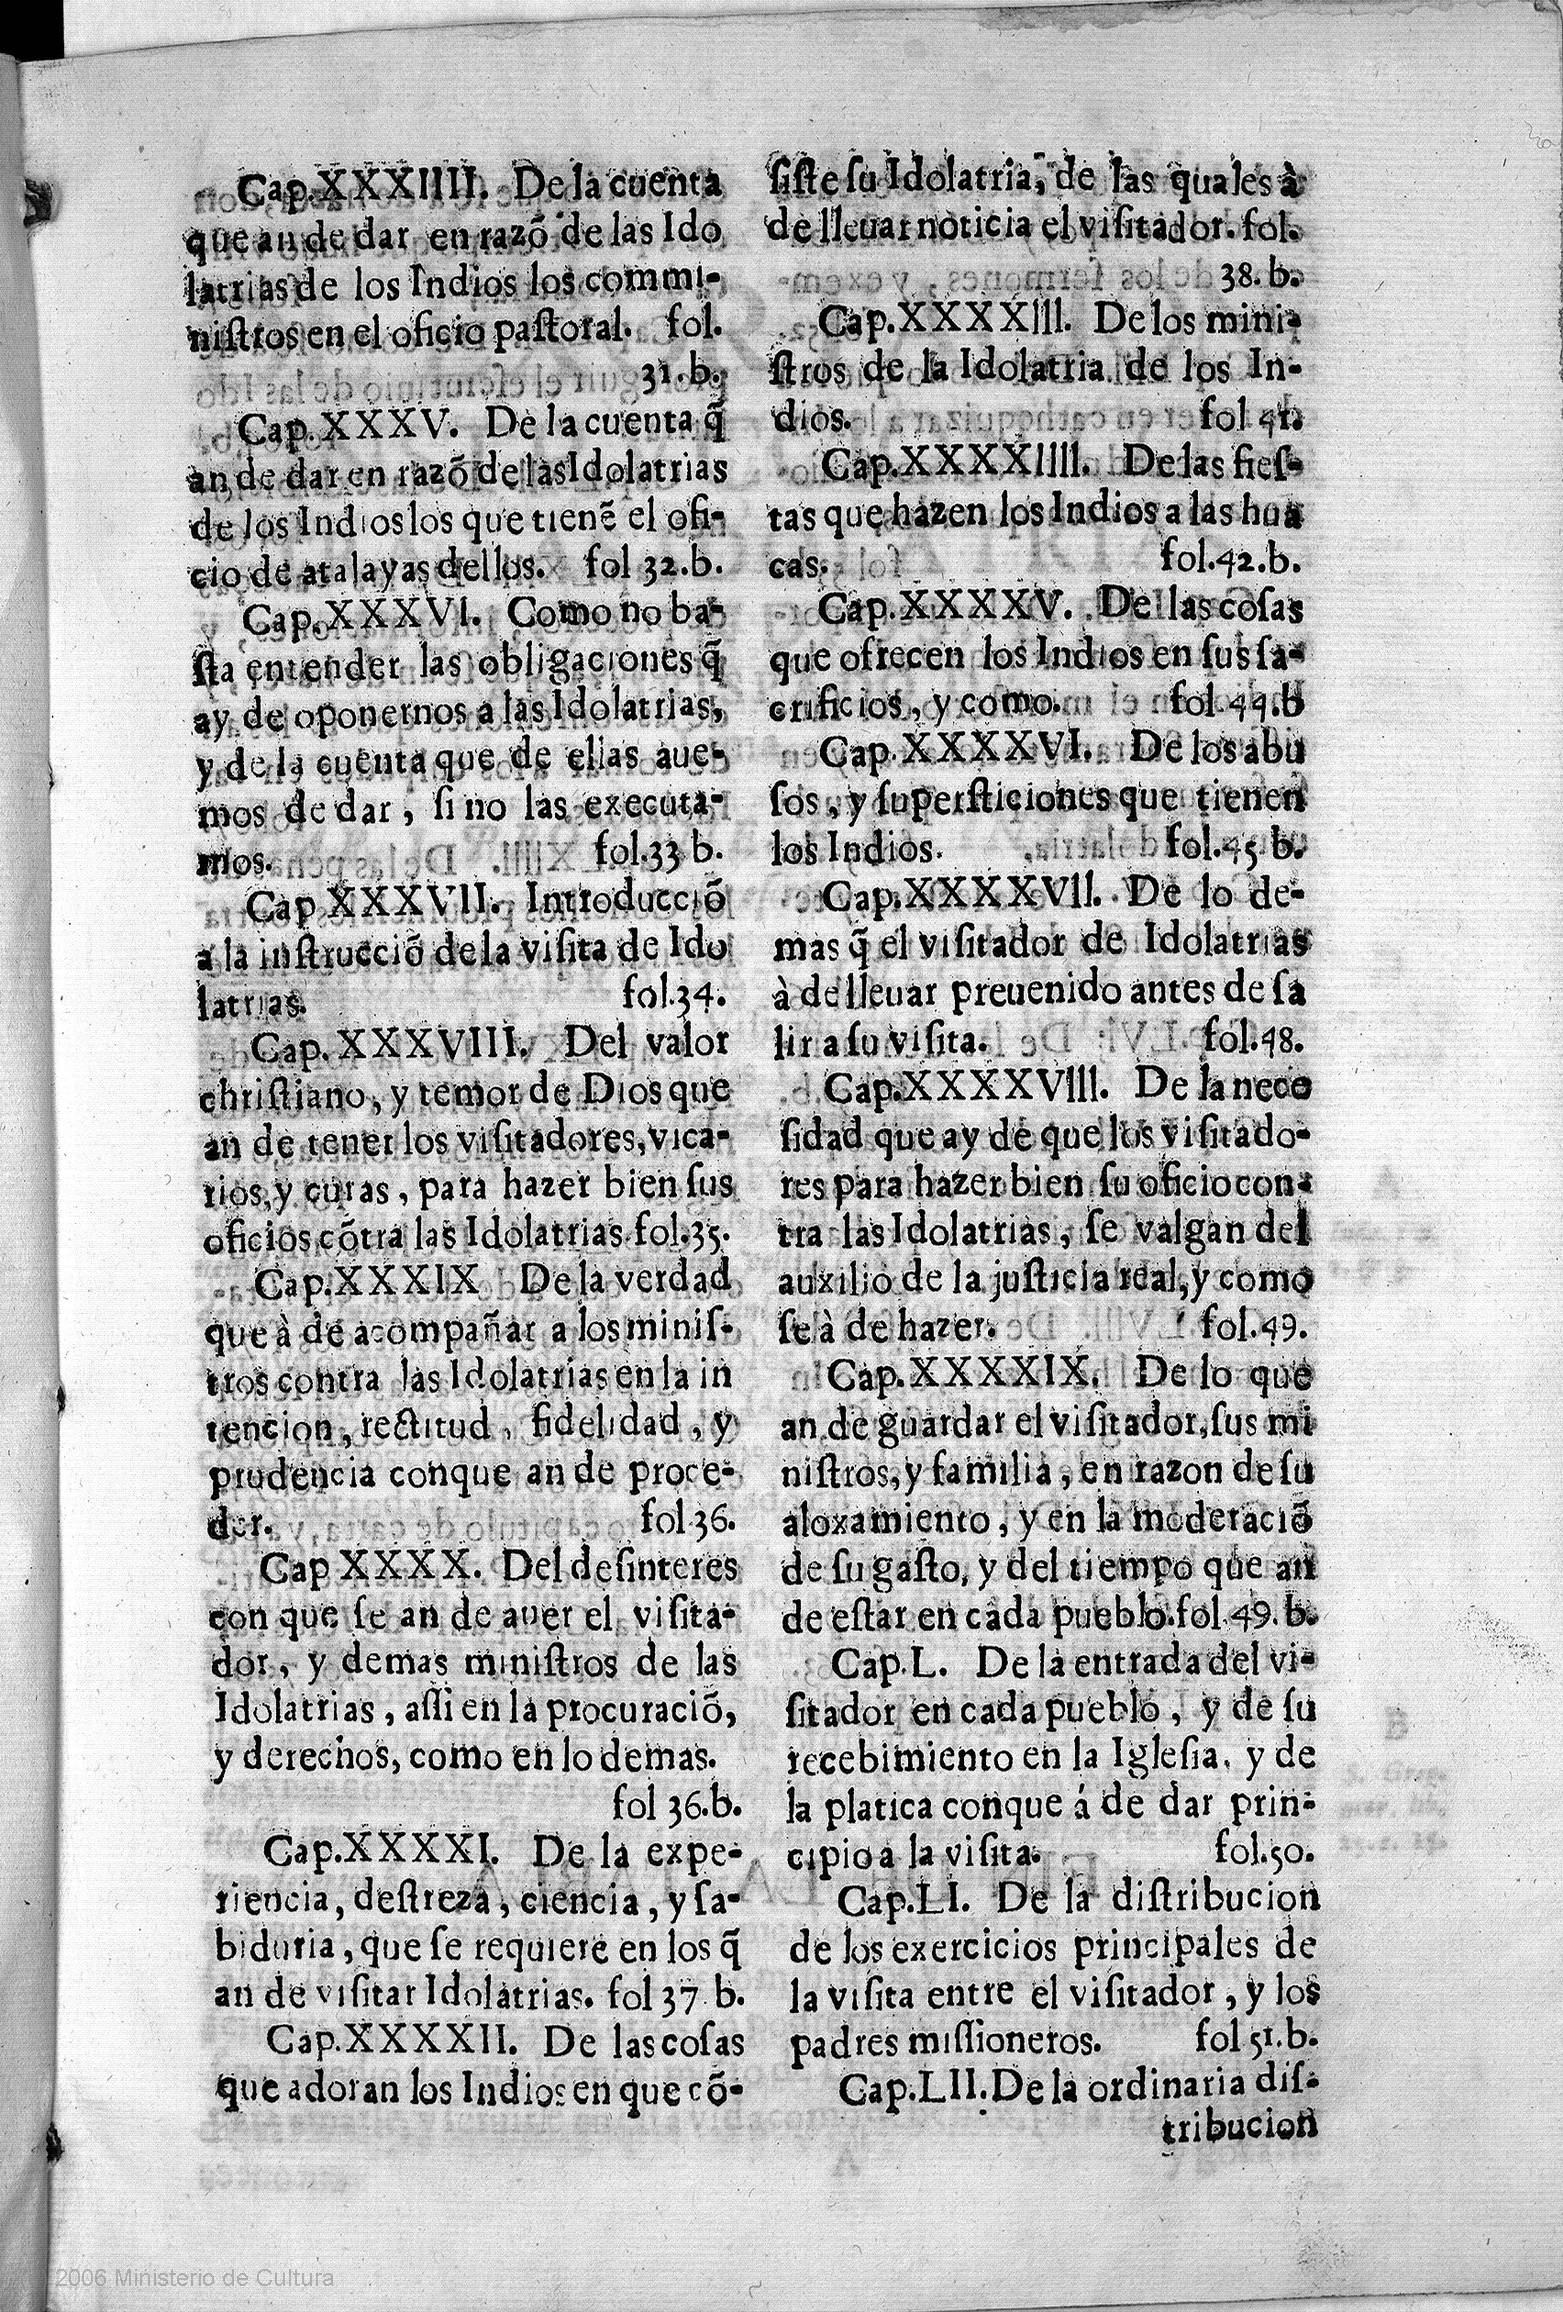 Cap.XXXIIII. De la cuenta
que an de dar en razõ de las Ido
latrias de los Indios los commi-
niſtros en el oficio paſtoral. fol.
31.b.
Cap.XXXV. De la cuenta q̃
an de dar en razõ de las Idolatrias
de los Indios los que tienẽ el ofi-
cio de atalayas dellos. fol 32.b.
Cap.XXXVI. Como no ba-
ſta entender las obligaciones q̃
ay de oponernos a las Idolatrias,
y de la cuenta que de ellas aue-
mos de dar, ſi no las executa-
mos. fol.33 b.
Cap XXXVII. Introducciõ
a la inſtrucciõ de la viſita de Ido
latrias. fol.34.
Cap. XXXVIII. Del valor
chriſtiano, y temor de Dios que
an de tener los viſitadores, vica-
rios, y curas, para hazer bien ſus
oficios cõtra las Idolatrias fol.35.
Cap.XXXIX De la verdad
que à de acompañar a los miniſ-
tros contra las Idolatrias en la in
tencion, rectitud, fidelidad, y
prudencia conque an de proce-
der. fol 36.
Cap XXXX. Del deſinteres
con que ſe an de auer el viſita-
dor, y demas miniſtros de las
Idolatrias, aſſi en la procuraciõ,
y derechos, como en lo demas.
fol 36.b.
Cap.XXXXI. De la expe-
riencia, deſtreza, ciencia, y ſa-
biduria, que ſe requiere en los q̃
an de viſitar Idolatrias. fol 37 b.
Cap.XXXXII. De las coſas
que adoran los Indios en que cõ-
ſiſte ſu Idolatria, de las quales à
de lleuar noticia el viſitador. fol.
38.b.
Cap.XXXXIII. De los mini-
ſtros de la Idolatria de los In-
dios. fol 41.
Cap.XXXXIIII. De las fieſ-
tas que hazen los Indios a las hua
cas. fol.42.b.
Cap.XXXXV. De las coſas
que ofrecen los Indios en ſus ſa-
crificios, y como. fol.44.b
Cap.XXXXVI. De los abu
ſos, y ſuperſticiones que tienen
los Indios. fol.45 b.
Cap.XXXXVII. De lo de-
mas q̃ el viſitador de Idolatrias
à de lleuar preuenido antes de ſa
lir a ſu viſita. fol.48.
Cap.XXXXVIII. De la nece
ſidad que ay de que los viſitado-
res para hazer bien ſu oficio con-
tra las Idolatrias, ſe valgan del
auxilio de la juſticia real, y como
ſe à de hazer. fol.49.
Cap.XXXXIX. De lo que
an de guardar el viſitador, ſus mi
niſtros, y familia, en razon de ſu
aloxamiento, y en la moderaciõ
de ſu gaſto, y del tiempo que an
de eſtar en cada pueblo. fol 49.b.
Cap.L. De la entrada del vi-
ſitador en cada pueblo, y de ſu
recebimiento en la Igleſia, y de
la platica conque á de dar prin-
cipio a la viſita. fol.50.
Cap.LI. De la diſtribucion
de los exercicios principales de
la viſita entre el viſitador, y los
padres miſſioneros. fol 51.b.
Cap.LII. De la ordinaria diſ-
tribucion
2006 Ministerio de Cultura